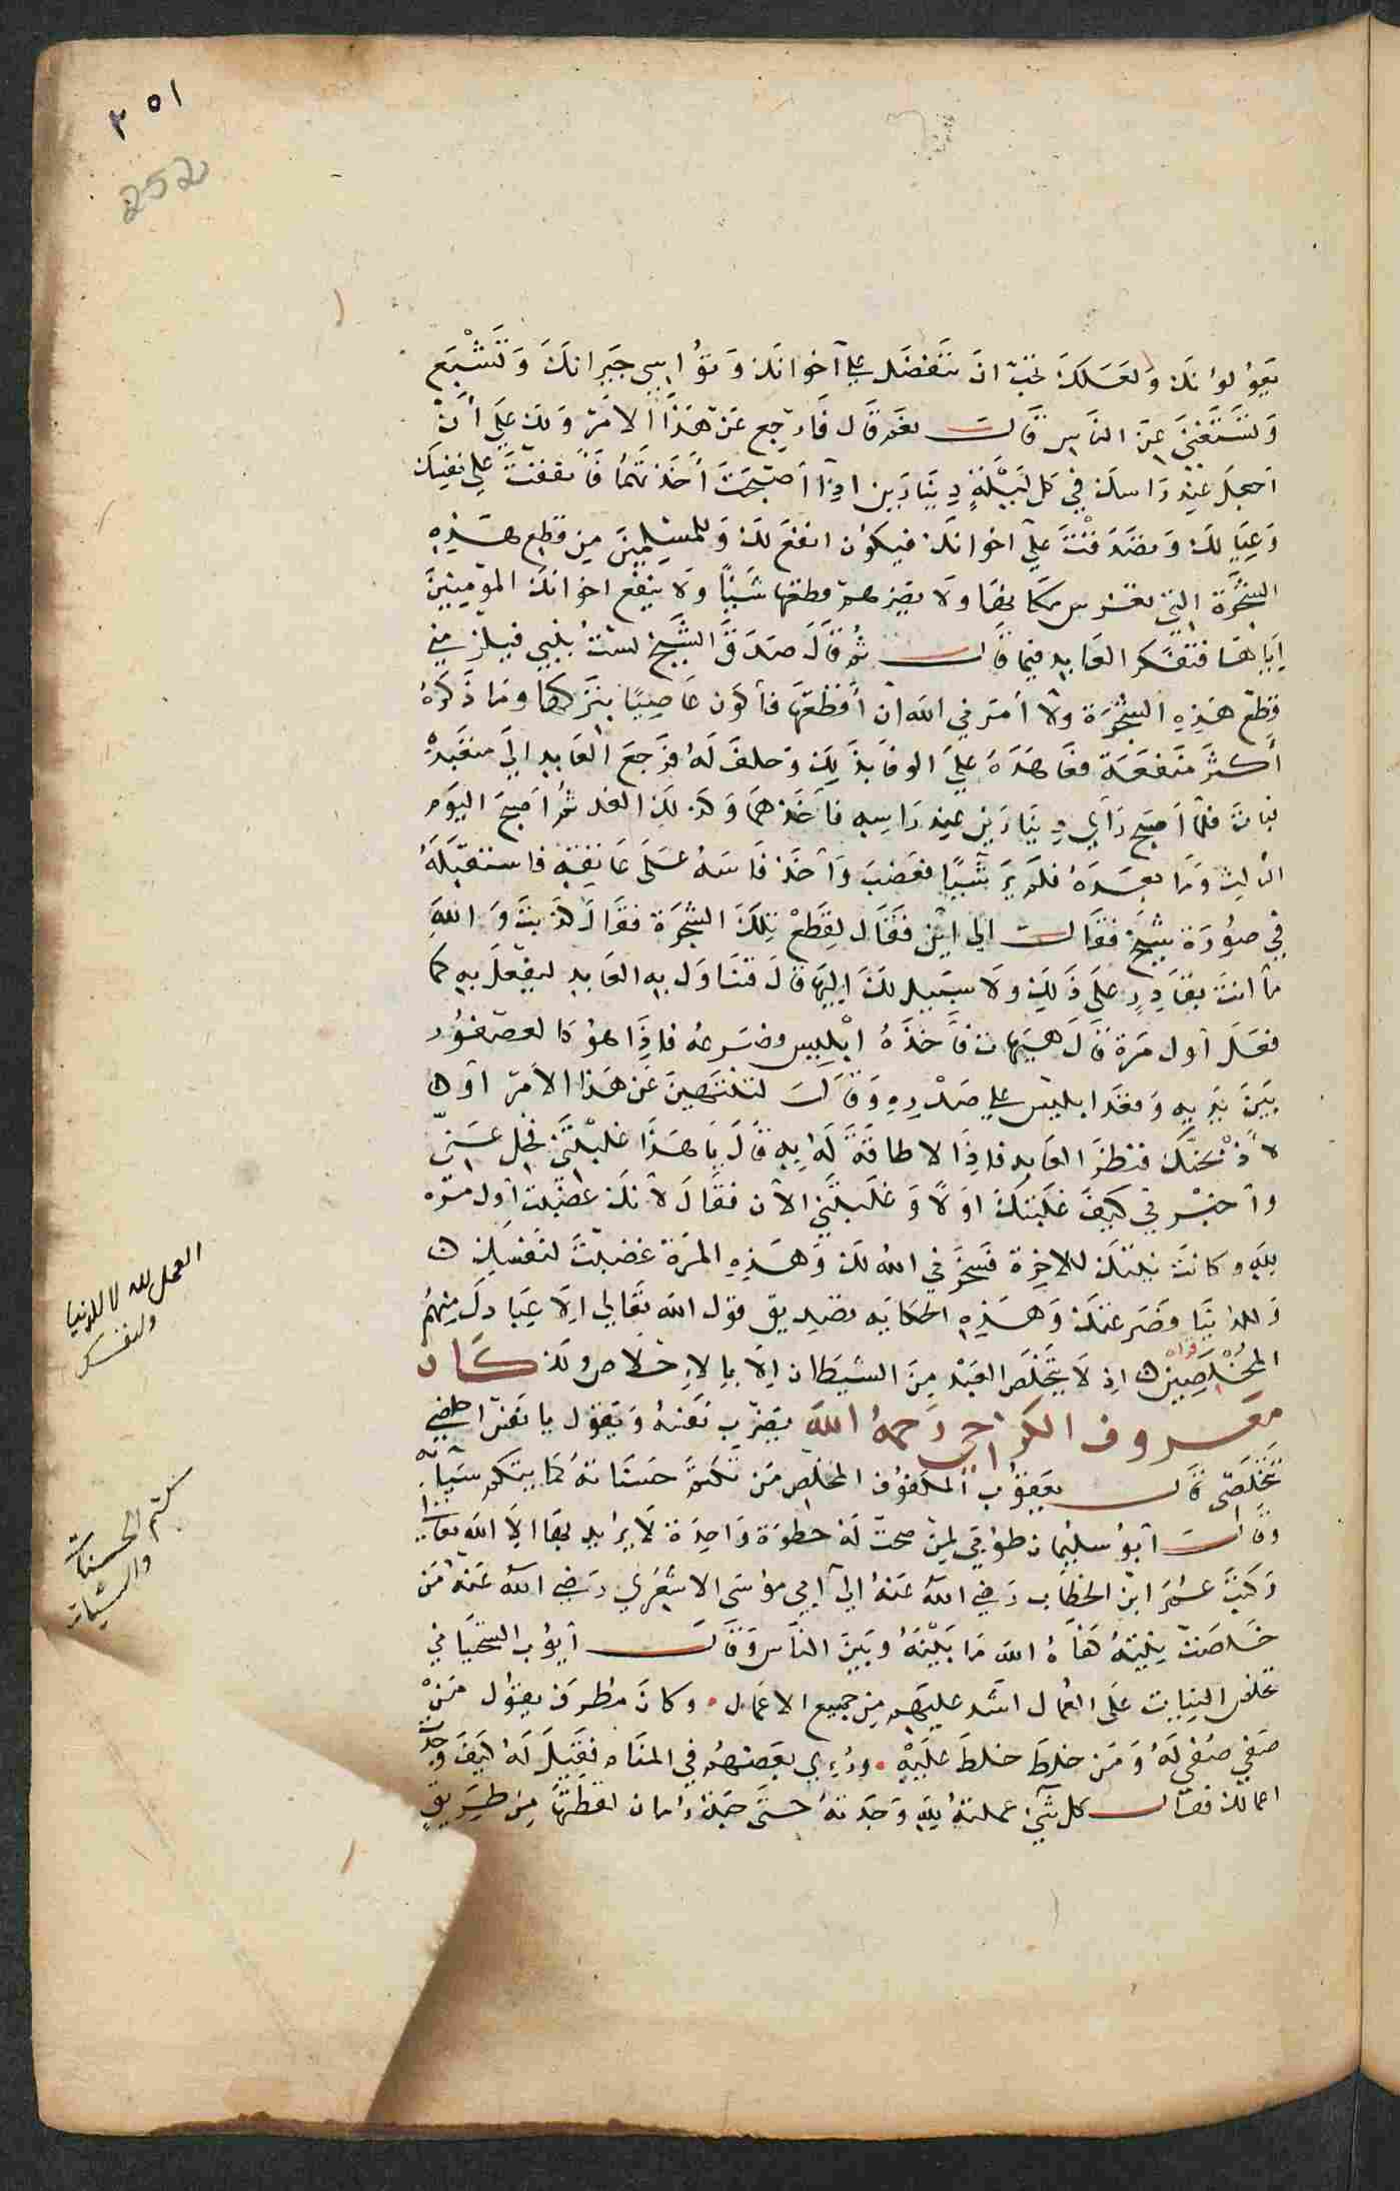 ٢٥١
252
يعولونك ولعلك تحب ان تتفضل على آخوانك وتؤاسي جيرانك وتشبع
وتستغني عن الناس قال نعم قال فارجع عن هذا الامر ولك علي أن
اجعل عند راسك في كل ليلة دينارين اذا اصبحت أخذتهما فانفقت علي نفسك
وعيالك وتصدقت علي اخوانك فيكون انفع لك وللمسلمين من قطع هذه
الشجرة التي يغرس مكانها ولا يضرهم قطعها شيئا ولا ينفع اخوانك المؤمنين
اياها فتفكر العابد فيما قال ثم قال صدق الشيخ لست بنبي فيلزمني
قطع هذه الشجرة ولا أمرني الله ان أقطعها فأكون عاصيا بتركها وما ذكره
أكثر منفعة فعاهده علي الوفا بذلك وحلف له فرجع العابد الي متعبده
فبات فلما اصبح راي دينارين عند راسه فاخذهما وكذلك الغد ثم اصبح اليوم
الثالث وما بعده فلم ير شيئا فغضب وآخذ فاسه على عاتقه فاستقبله
في صورة شيخ فقال الي اين فقال لقطع تلك الشجرة فقال كذبت والله
ما انت بقادر على ذلك ولا سبيل لك اليها قال فتناول به العابد ليفعل به كما
فعل أول مرة قال هيهات فاخذه ابليس وصرعه فاذا هو كالعصفور
بين يديه وقعد ابليس علي صدره وقال لتنتهين عن هذا الامر آو
لأذبحنك فنظر العابد فاذا لا طاقة له به قال يا هذا غلبتني فخل عني
وآخبرني كيف غلبتك اولا وغلبتني الآن فقال لآنك غضبت آول مره
لله وكانت نيتك للاخرة فسخرني الله لك وهذه المرة غضبت لنفسك
وللدنيا فصرعتك وهذه الحكايه تصديق قول الله تعالي الا عبادك منهم
المخلصين اذ لا يتخلص العبد من الشيطان الا بالاخلاص ولذلك كان
معروف الكرخي رحمه الله يضرب نفسه ويقول يا نفس اخلصي
تتخلصي قال يعقوب المكفوف المخلص من يكتم حسناته كما يكتم سيآته
وقال آبو سليمان طوبي لمن صحت له خطوة واحدة لا يريد بها الا الله تعالي
وكتب عمر ابن الخطاب رضي الله عنه الي آبي موسى الاشعري رضي الله عنه من
خلصت نيته كفاه الله ما بينه وبين الناس وقال آيوب السختياني
تخليص النيات على العمال اشد عليهم من جميع الاعمال وكان مطرف يقول من
صفى صفي له ومن خلط خلط عليه ورؤي بعضهم في المنام فقيل له كيف وجدت
اعمالك فقال كل شيئ عملته لله وجدته حتى حبة رمان لقطتها من طريق
العمل لله لا للدنيا
ولنفسك
يكتم الحسنات
والسيئات